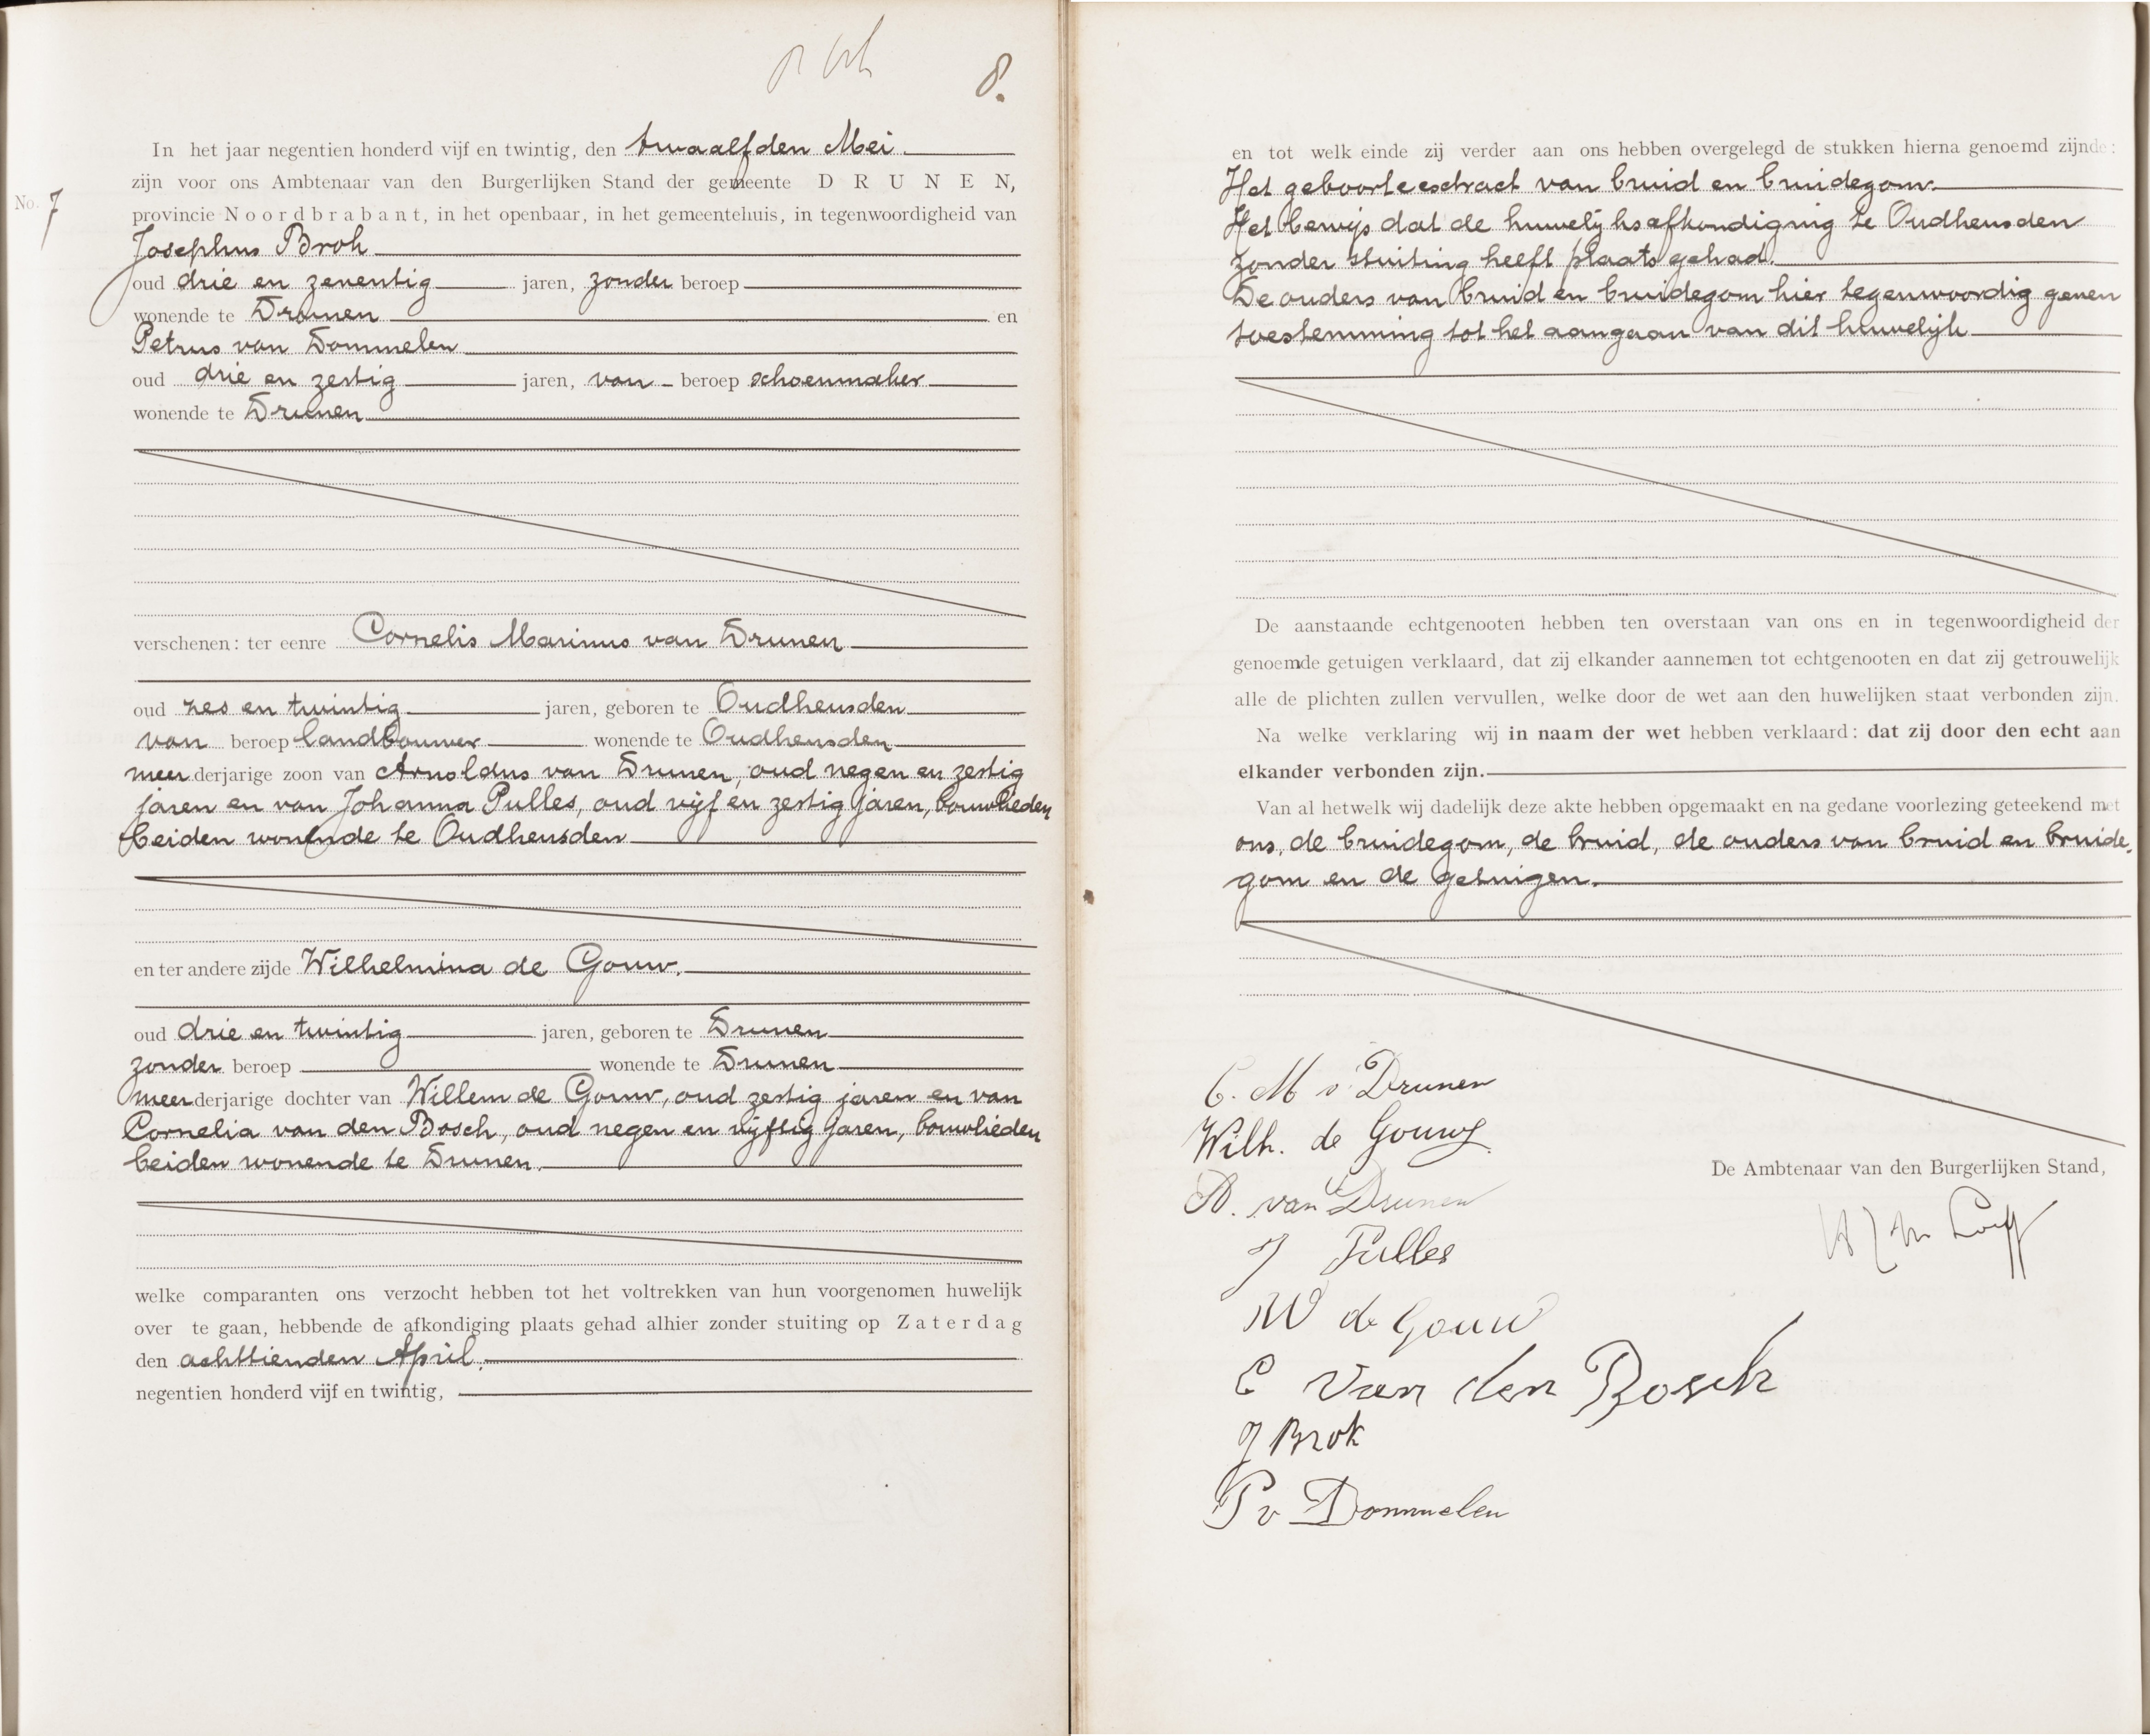 8.
In het jaar negentien honderd vijf en twintig, den twaalfden Mei
zijn voor ons Ambtenaar van den Burgerlijken Stand der gemeente D R U N E N,
No. 7
provincie Noordbrabant, in het openbaar, in het gemeentehuis, in tegenwoordigheid van
Josephus Brok
oud drie en zeventig jaren, zonder beroep
wonende te Drunen en
Petrus van Dommelen
oud drie en zestig jaren, van beroep schoenmaker
wonende te Drunen
verschenen: ter eenre Cornelis Marinus van Drunen
oud zes en twintig jaren, geboren te Oudheusden
van beroep landbouwer wonende te Oudheusden
meerderjarige zoon van Arnoldus van Drunen, oud negen en zestig
jaren en van Johanna Pulles, oud vijf en zestig jaren, bouwlieden
beiden wonende te Oudheusden
en ter andere zijde Wilhelmina de Gouw.
oud drie en twintig jaren, geboren te Drunen
zonder beroep wonende te Drunen
meerderjarige dochter van Willem de Gouw, oud zestig jaren en van
Cornelia van den Bosch, oud negen en vijftig jaren, bouwlieden
beiden wonende te Drunen.
welke comparanten ons verzocht hebben tot het voltrekken van hun voorgenomen huwelijk
over te gaan, hebbende de afkondiging plaats gehad alhier zonder stuiting op Zaterdag
den achttienden April.
negentien honderd vijf en twintig,
en tot welk einde zij verder aan ons hebben overgelegd de stukken hierna genoemd zijnde:
Het geboorteextract van bruid en bruidegom.
Het bewijs dat de huwelijksafkondiging te Oudheusden
zonder stuiting heeft plaats gehad.
De ouders van bruid en bruidegom hier tegenwoordig geven
toestemming tot het aangaan van dit huwelijk
De aanstaande echtgenooten hebben ten overstaan van ons en in tegenwoordigheid der
genoemde getuigen verklaard, dat zij elkander aannemen tot echtgenooten en dat zij getrouwelijk
alle de plichten zullen vervullen, welke door de wet aan den huwelijken staat verbonden zijn.
Na welke verklaring wij in naam der wet hebben verklaard: dat zij door den echt aan
elkander verbonden zijn.
Van al hetwelk wij dadelijk deze akte hebben opgemaakt en na gedane voorlezing geteekend met
ons, de bruidegom, de bruid, de ouders van bruid en bruide-
gom en de getuigen.
C. M v Drunen
Wilh. de Gouw
A. van Drunen
De Ambtenaar van den Burgerlijken Stand,
J Pulles
W de Gouw
C van den Bosch
J Brok
P v Dommelen